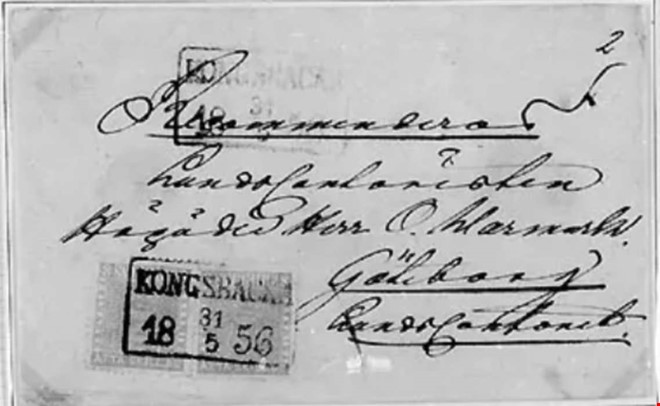 2
KONGSBACKA
18 31
Recommenderas
LandsCantoristen
Högädle Herr C. Warmark.
Götheborg
KONGSBACKA
18 31 5 56
LandsContoret.